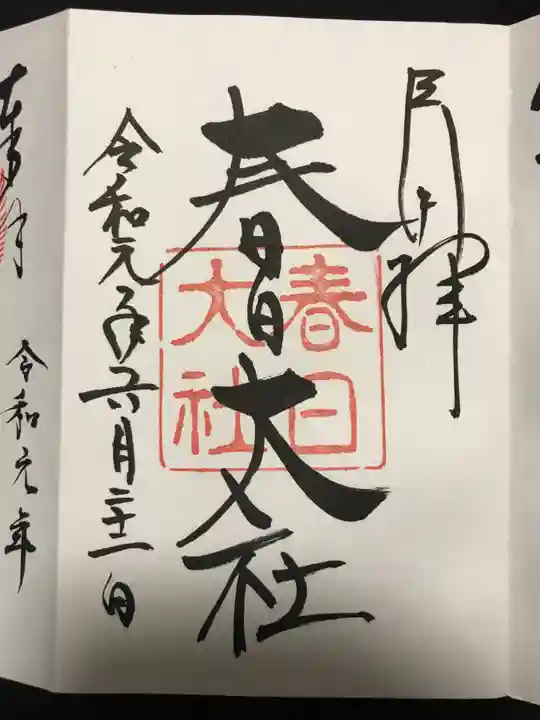 拝
春日大社
春日
大社
令和元年六月二十一日
奉拝
令和元年